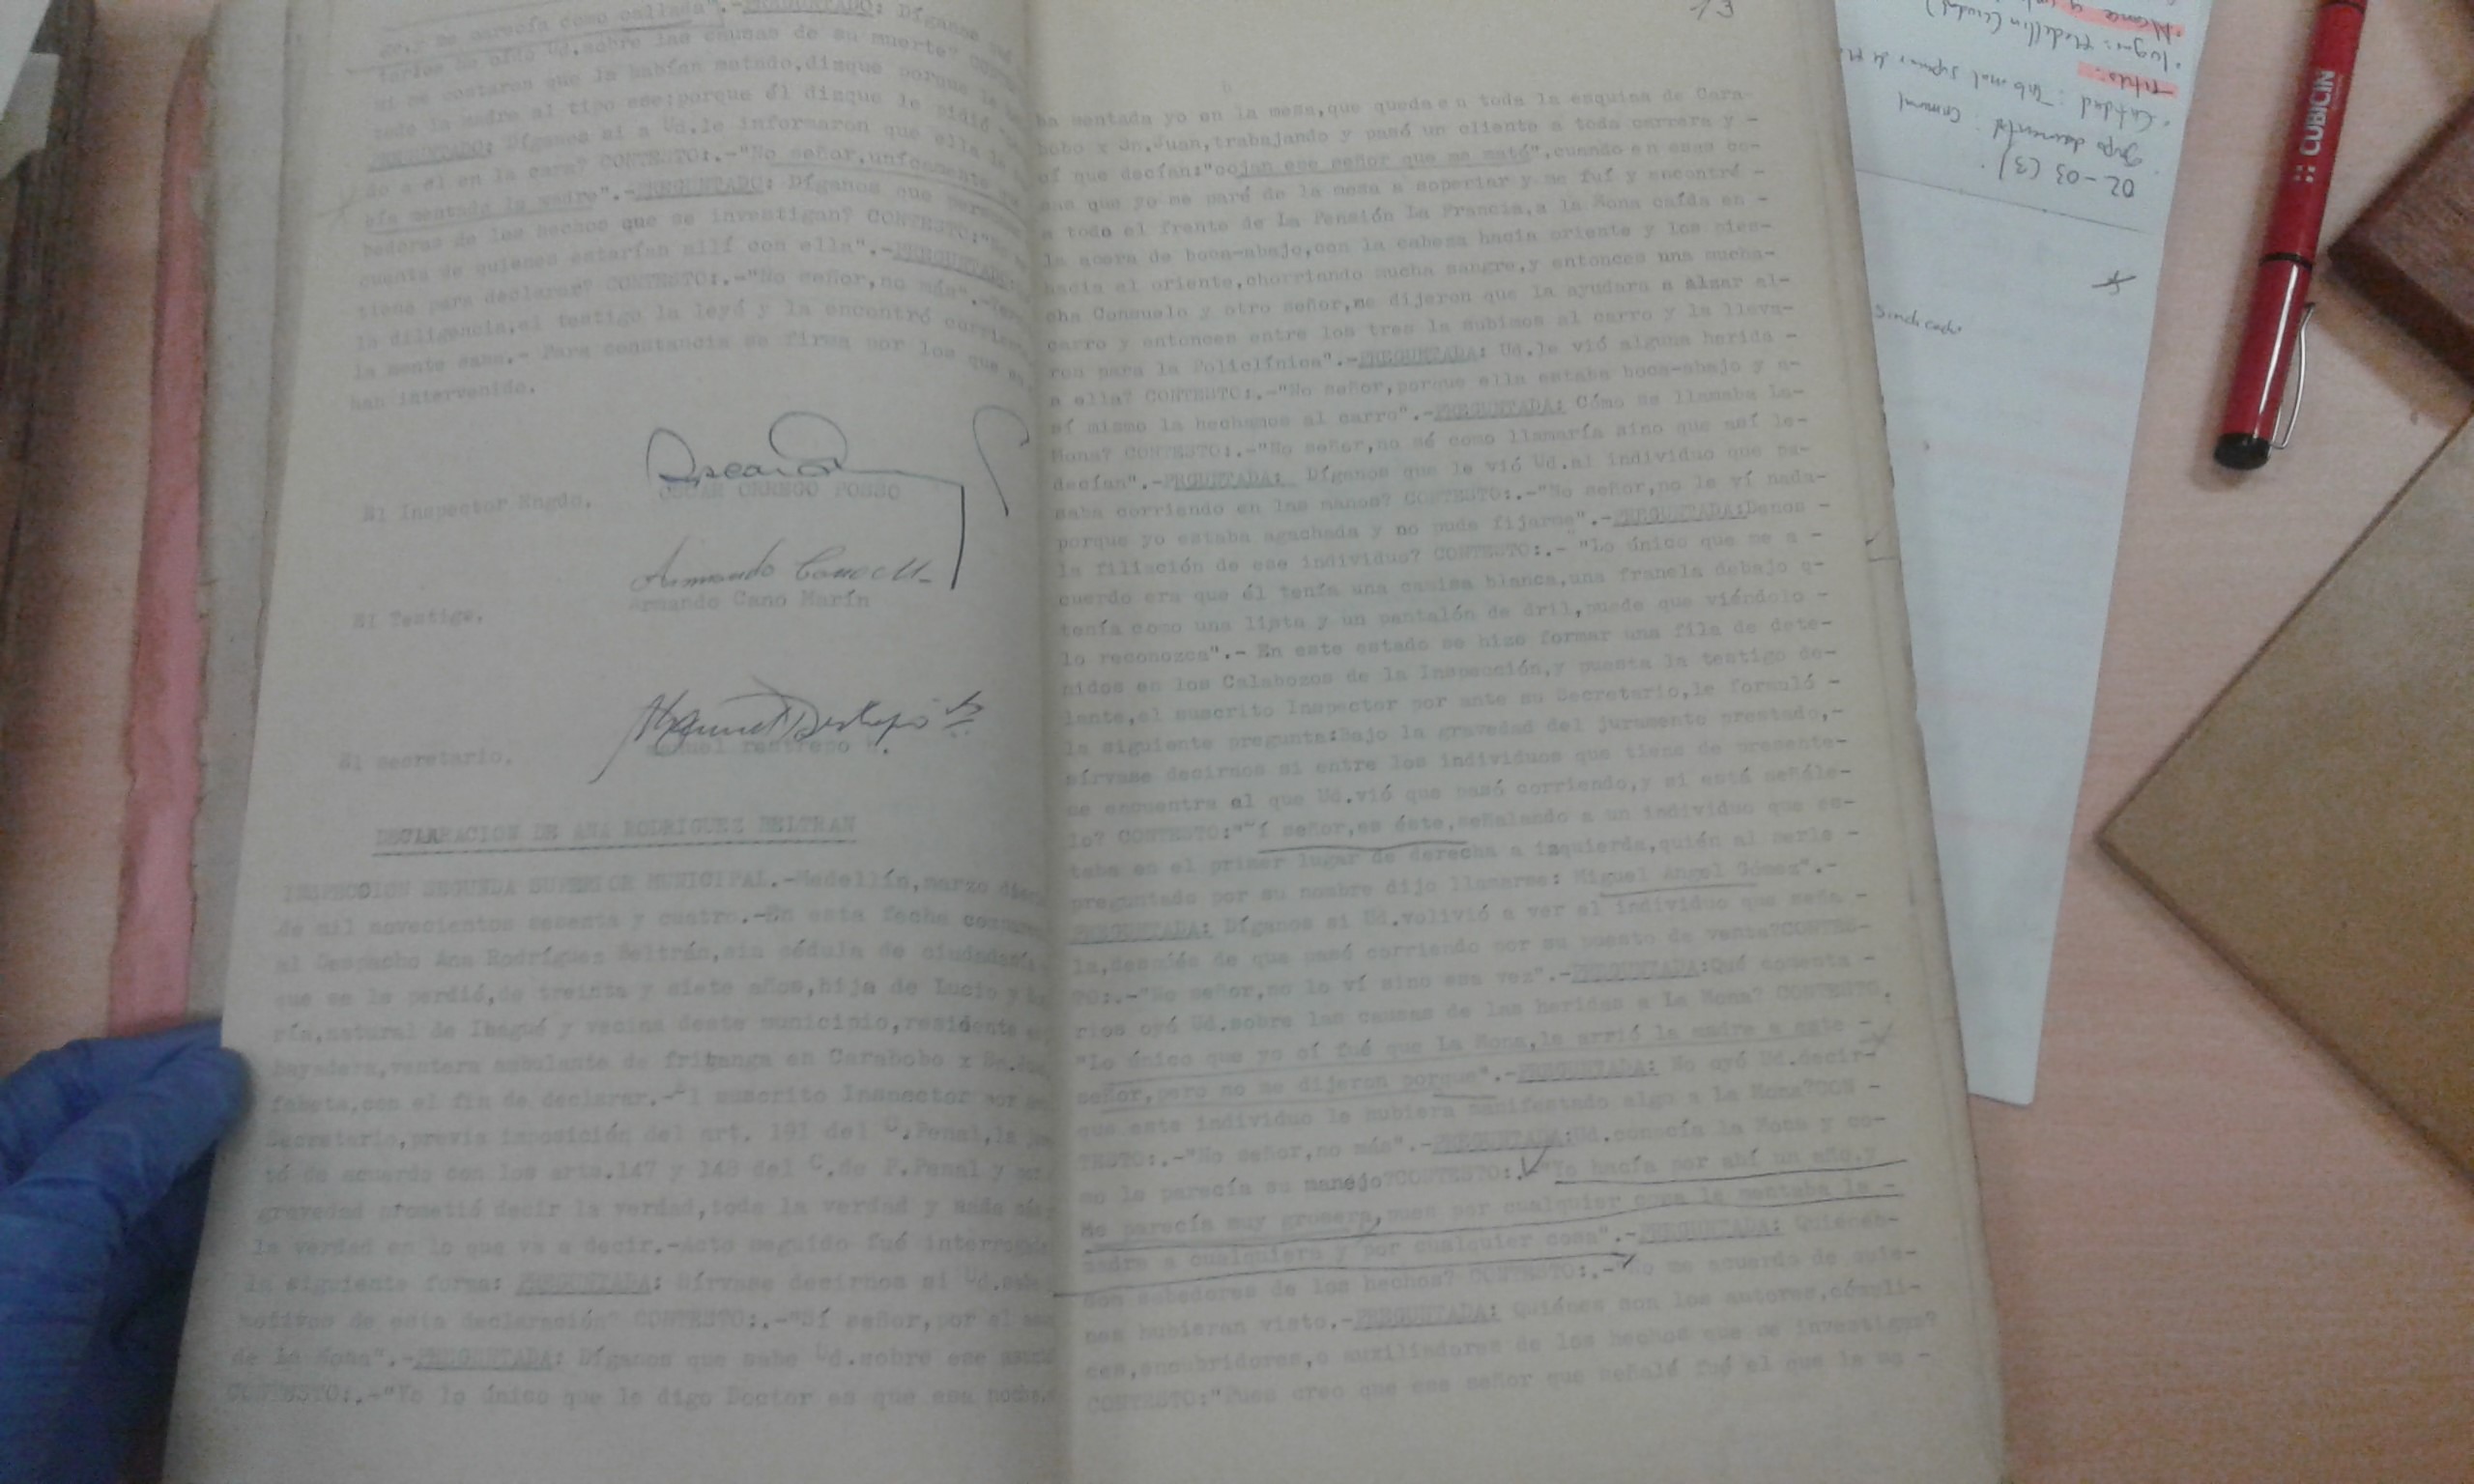 me parecía como callada".-PREGUNTADO: Díganos qué
oído Ud.sobre las causas de su muerte? CONTESTO
mi me contaron que la habían matado,disque porque le
la madre al tipo ese;porque él disque le pidió
PREGUNTADO: Díganos si a Ud.le informaron que ella le
do a él en la cara? CONTESTO:.-"No señor,unicamente que
bía mentado la madre".-PREGUNTADO: Díganos que personas
bedoras de los hechos que se investigan? CONTESTO:"No
cuenta de quienes estarían allí con ella".-PREGUNTADO
tiene para declarar? CONTESTO:.-"No señor,no más".-
la diligencia,el testigo la leyó y la encontró corriente
la mente sana.- Para constancia se firma por los que en
han intervenido.
El Inspector Engdo.
OSCAR ORREGO POSSO
Armando Cano M.
El Testigo,
Armando Cano Marín
Manuel Restrepo
El Secretario,
Manuel Restrepo
DECLARACION DE ANA RODRIGUEZ BELTRAN
INSPECCION SEGUNDA SUPERIOR MUNICIPAL.-Medellín,marzo
de mil novecientos sesenta y cuatro.-En esta fecha
al Despacho Ana Rodríguez Beltrán,sin cédula de ciudadanía
que se le perdió,de treinta y siete años,hija de Lucio y
ría,natural de Ibagué y vecina deste municipio,residente en
bayadera,ventera ambulante de fritanga en Carabobo x Sn.
fabeta,con el fin de declarar.-El suscrito Inspector por
Secretario,previa imposición del art. 191 del C.Penal,la
tó de acuerdo con los arts.147 y 148 del C.de P.Penal y
gravedad prometió decir la verdad,toda la verdad y nada más
la verdad en lo que va a decir.-Acto seguido fué
la siguiente forma: PREGUNTADA: Sírvase decirnos si Ud.sabe
motivos de esta declaración" CONTESTO:.-"Sí señor,por el
de La Mona".-PREGUNTADA: Díganos que sabe Ud.sobre ese
CONTESTO:.-"Yo lo único que le digo Doctor es que esa noche
13
ba sentada yo en la mesa,que queda en toda la esquina de Cara-
bobo x Sn.Juan,trabajando y pasó un cliente a toda carrera y -
oí que decían:"cojan ese señor que me mató",cuando en esas co-
sas que yo me paré de la mesa a soportar y me fuí y encontré -
a todo el frente de La Pensión La Francia,a la Mona caída en -
la acera de boca-abajo,con la cabeza hacia oriente y los pies-
hacia el oriente,chorriando mucha sangre,y entonces una mucha-
cha Consuelo y otro señor,me dijeron que la ayudara a alzar al-
carro y entonces entre los tres la subimos al carro y la lleva-
ron para la Policlínica".-PREGUNTADA: Ud.le vió alguna herida -
a ella? CONTESTO:.-"No señor,porque ella estaba boca-abajo y a-
sí mismo la hechamos al carro".-PREGUNTADA: Cómo se llamaba La-
Mona? CONTESTO:.-"No señor,no sé como llamaría sino que así le-
decían".-PRGUNTADA: Díganos que le vió Ud.al individuo que pa-
saba corriendo en las manos? CONTESTO:.-"No señor,no le ví nada-
porque yo estaba agachada y no pude fijarme".-PREGUNTADA:Denos -
la filiación de ese individuo? CONTESTO:.- "Lo único que me a -
cuerdo era que él tenía una camisa blanca,una franela debajo q-
tenía como una lista y un pantalón de dril,puede que viéndolo -
lo reconozca".- En este estado se hizo formar una fila de dete-
nidos en los Calabozos de la Inspección,y puesta la testigo de-
lante,el suscrito Inspector por ante su Secretario,le formuló -
la siguiente pregunta:Bajo la gravedad del juramento prestado,-
sírvase decirnos si entre los individuos que tiene de presente-
se encuentra el que Ud.vió que pasó corriendo,y si está señále-
lo? CONTESTO:"Sí señor,es éste,señalando a un individuo que es-
taba en el primer lugar de derecha a izquierda,quién al serle -
preguntado por su nombre dijo llamarse: Miguel Angel Gómez".-
PREGUNTADA: Díganos si Ud.volivió a ver el individuo que seña -
la,después de que pasó corriendo por su puesto de venta?CONTES-
TO:.-"No señor,no lo ví sino esa vez".-PREGUNTADA:Qué comenta -
rios oyó Ud.sobre las causas de las heridas a La Mona? CONTESTO.
"Lo único que yo oí fué que La Mona,le arrió la madre a este -
señor,pero no me dijeron porque".-PREGUNTADA: No oyó Ud.decir-
que este individuo le hubiera manifestado algo a la Mona?CON -
TESTO:.-"No señor,no más".-PREGUNTADA:Ud.conocía la Mona y có-
mo le parecía su manejo?CONTESTO:."Yo hacía por ahí un año,y
me parecía muy grosera,pues por cualquier cosa le mentaba la -
madre a cualquiera y por cualquier cosa".-PREGUNTADA: Quiénes-
son sabedores de los hechos? CONTESTO:.-"No me acuerdo de quie-
nes hubieran visto.-PREGUNTADA: Quiénes son los autores,cómpli-
ces,encubridores,o auxiliadores de los hechos que se investigan?
CONTESTO:"Pues creo que ese señor que señalé fué el que la ma -
02-03 (3)
Grupo documental: Criminal
Entidad: Tribunal Superior de M
Título:
lugar: Medellín (ciudad)
Sindicado
CUBICIN